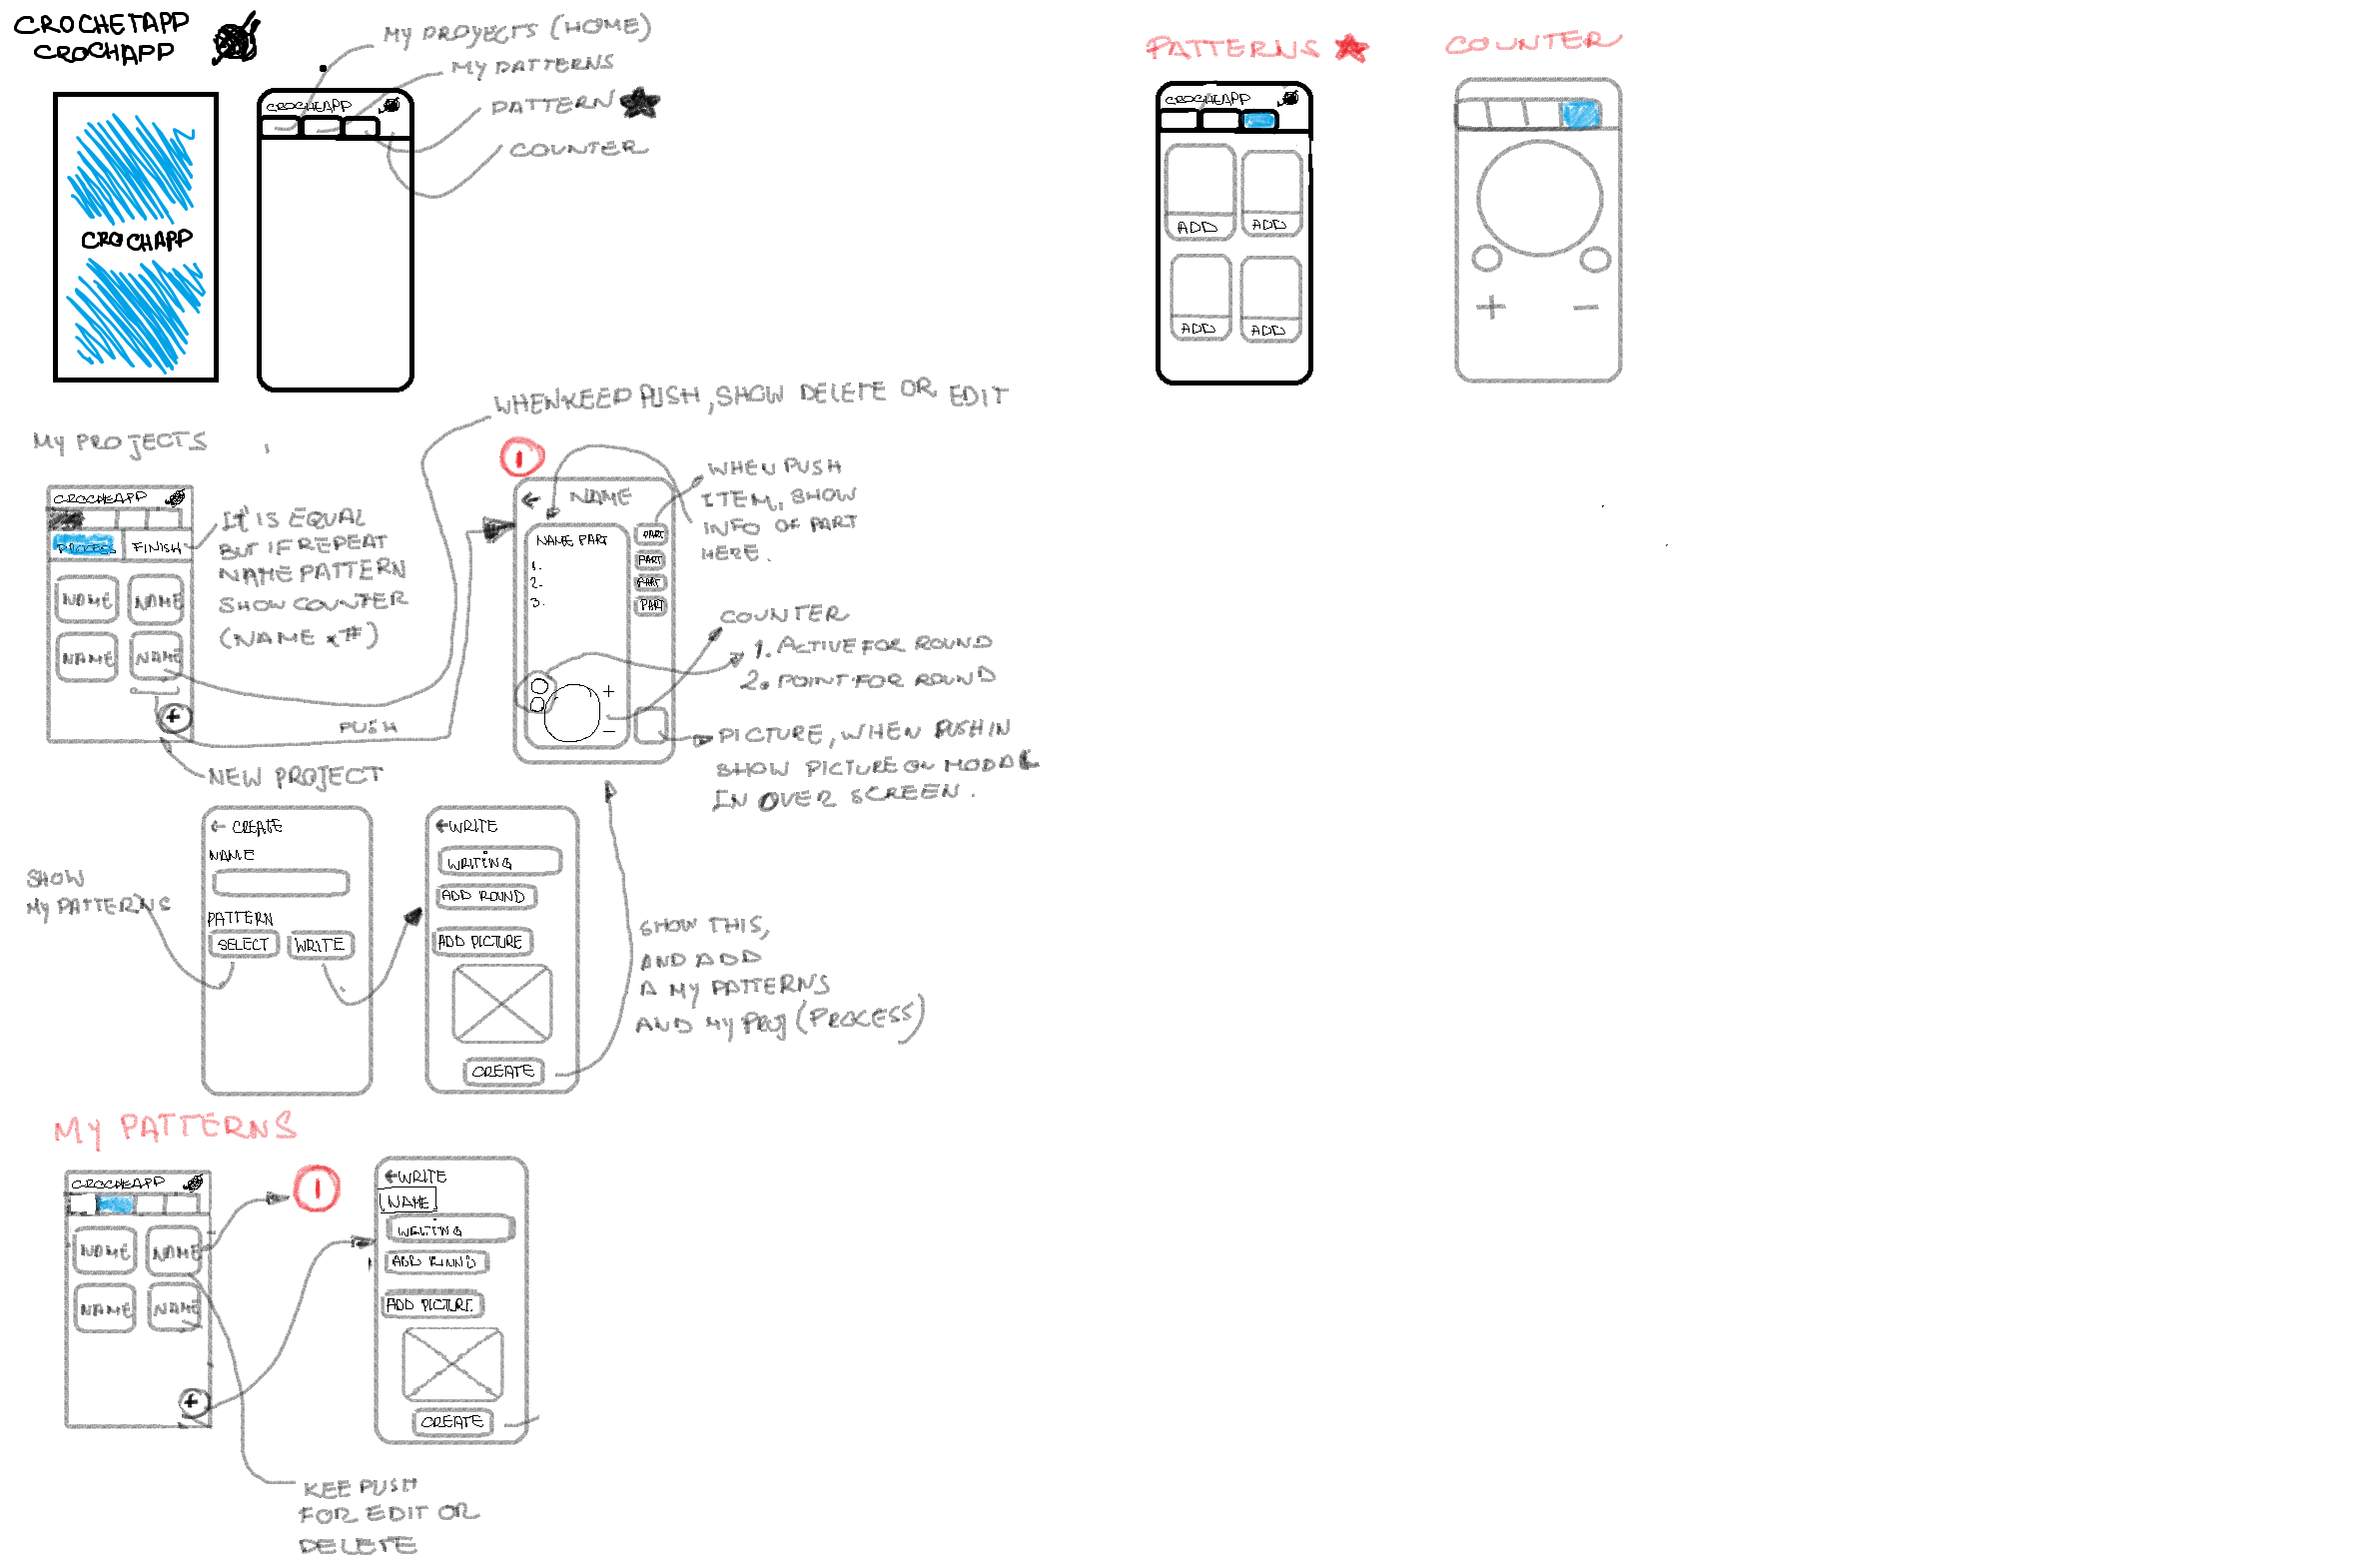 CROCHETAPP
CROCHAPP
MY PROYECTS (HOME)
MY PATTERNS
PATTERN
COUNTER
CROCHEAPP
CROCHAPP
PATTERNS
CROCHEAPP
ADD
ADD
ADD
ADD
COUNTER
+
-
WHEN KEEP PUSH, SHOW DELETE OR EDIT
MY PROJECTS
CROCHEAPP
PROCESS
FINISH
NAME
NAME
NAME
NAME
+
IT IS EQUAL
BUT IF REPEAT
NAME PATTERN
SHOW COUNTER
(NAME x #)
PUSH
NEW PROJECT
1
← NAME
NAME PART
1.
2.
3.
PART
PART
PART
PART
+
-
WHEN PUSH
ITEM, SHOW
INFO OF PART
HERE.
COUNTER
1. ACTIVE FOR ROUND
2. POINT FOR ROUND
PICTURE, WHEN PUSH IN
SHOW PICTURE ON MODAL
IN OVER SCREEN.
← CREATE
NAME
PATTERN
SELECT
WRITE
SHOW
MY PATTERNS
← WRITE
WRITING
ADD ROUND
ADD PICTURE
CREATE
SHOW THIS,
AND ADD
A MY PATTERNS
AND MY PROJ (PROCESS)
MY PATTERNS
CROCHEAPP
NAME
NAME
NAME
NAME
+
1
← WRITE
NAME
WRITING
ADD ROUND
ADD PICTURE
CREATE
KEE PUSH
FOR EDIT OR
DELETE